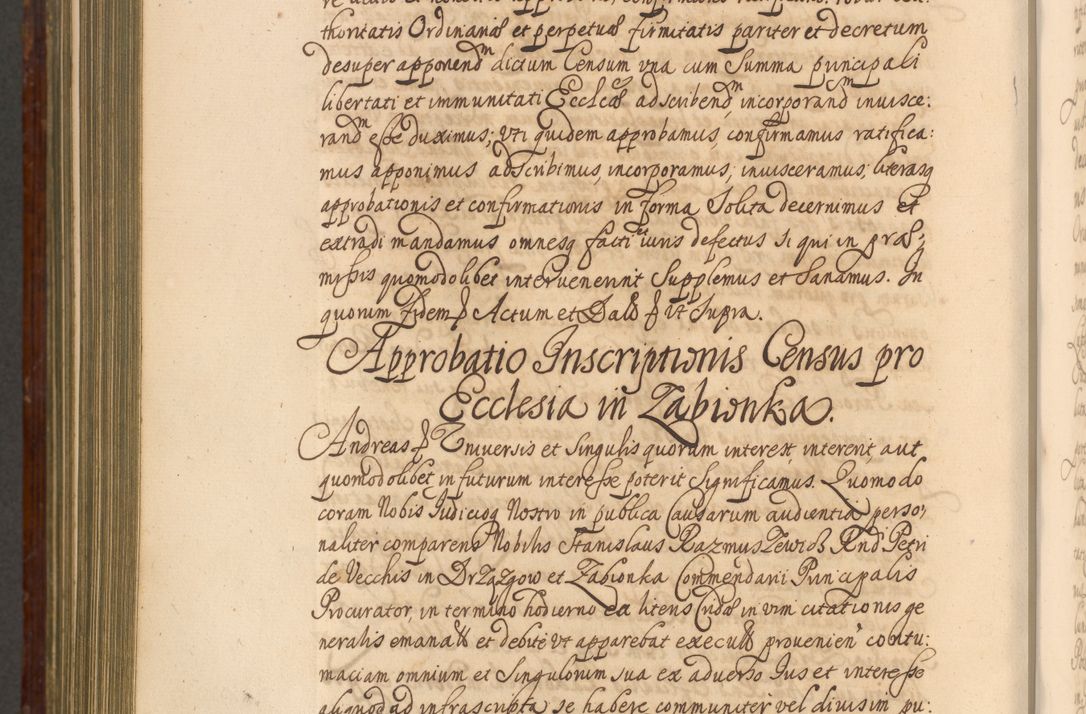 thoritatis Ordinariæ et perpetuæ firmitatis pariter et decretum
desuper apponendm dictum Censum una cum Summa principali
libertati et immunitati Ecclcæ adscribendm incorporandm invisce:
randm esse duximus; uti quidem approbamus, confirmamus ratifica:
mus apponimus adscribimus, incorporamus, invisceramus, literasq
approbationis et confirmationis in forma Solita decernimus et
extradi mandamus omnesq facti et iuris defectus si qui in præ,
missis quomodolibet intervenerint Supplemus et Sanamus. In
quorum Fidem p Actum et Datt p ut Supra.
Approbatio Inscriptionis Census pro
Ecclesia in Zabionka.
Andreas p Universis et Singulis quorum interest, intererit, aut
quomodolibet in futurum interesse poterit Significamus. Quomodo
coram Nobis Iudicioq Nostro in publica Causarum audientia perso,
naliter comparens Nobilis Stanislaus RazmusZewicz Rndi Petri
de Vecchis in DrZązgow et Zabionka Commendarii Principalis
Procurator, in termino hodierno ea litens Cridæ in vim citationis ge
neralis emanatt et debite ut apparebat execútt provenien contu:
maciam omnium et Singulorum sua ex adverso Ius et interesse
aliquod ad infrascripta se habere communiter vel divisim pu: